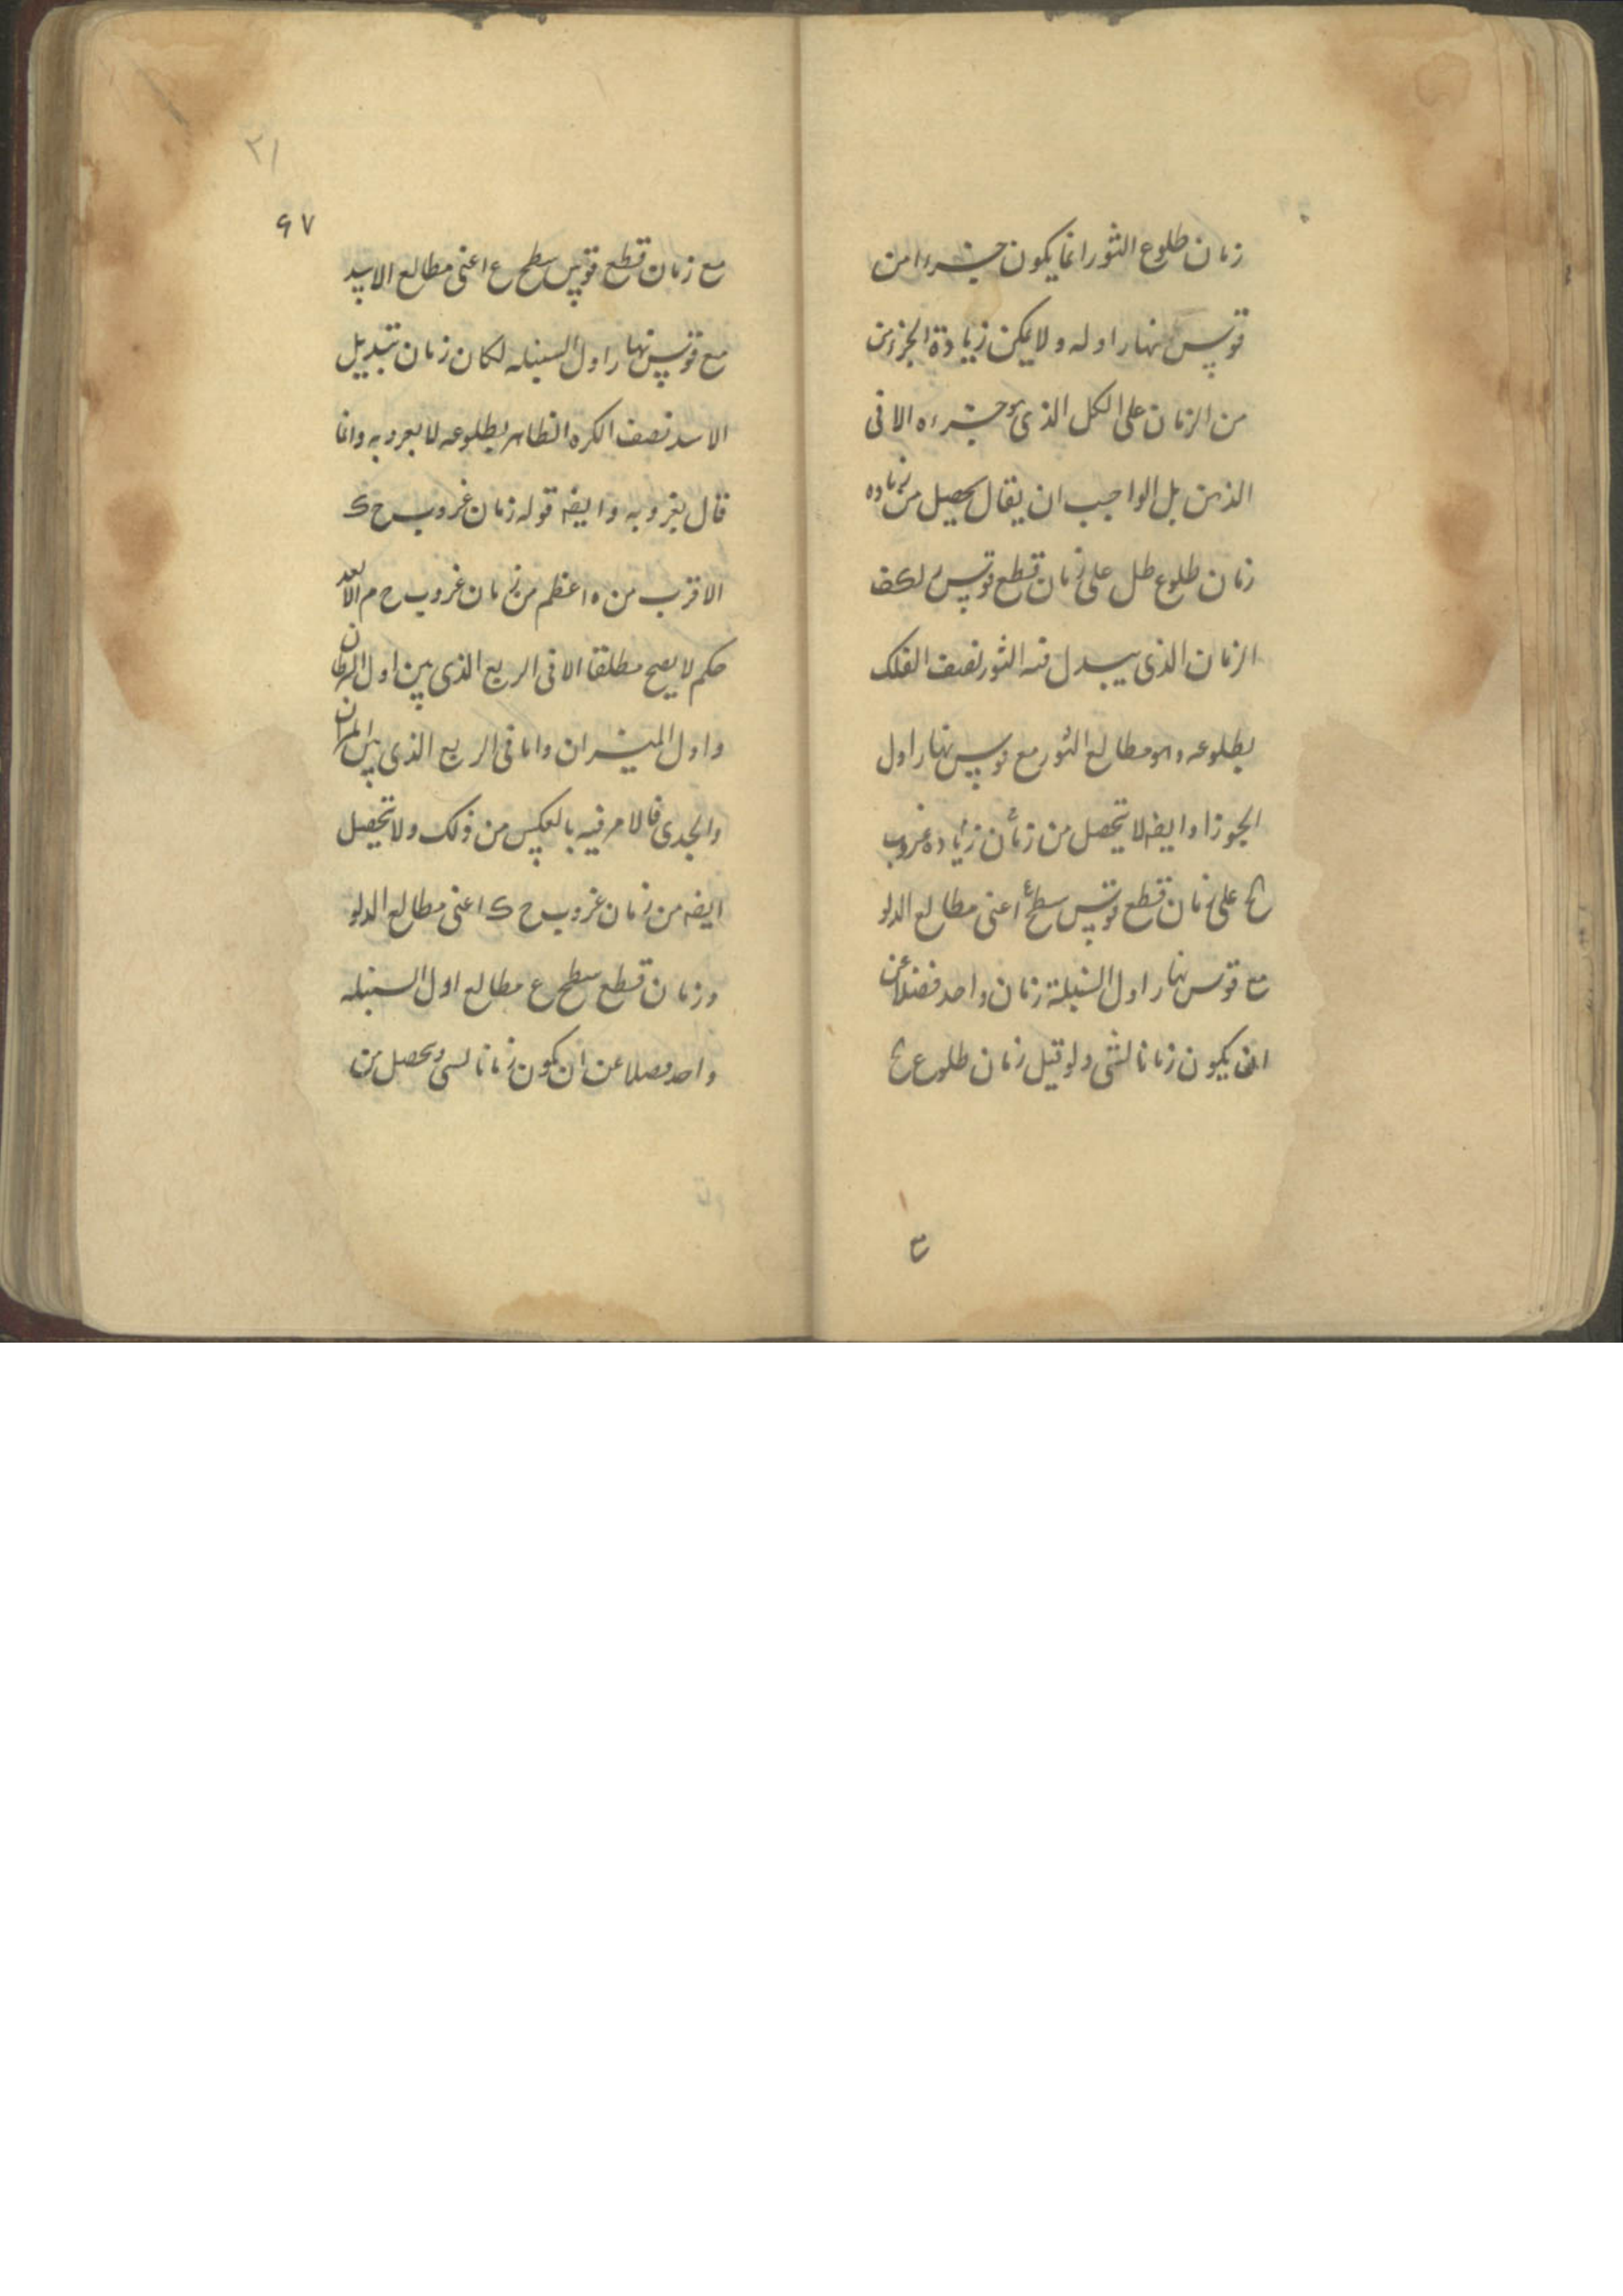 زمان طلوع الثور انما يكون جزءا من
قوس نهار اوله ولا يمكن زيادة الجزء من
من الزمان على الكل الذى هو جزءه الا فى
الذهن بل الواجب ان يقال يحصل من زياده
زمان طلوع طل على زمان قطع قوس لكف
الزمان الذى يبدل فيه الثور نصف الفلك
بطلوعه وهو مطالع الثور مع قوس نهار اول
الجوزا وايضا لا يتحصل من زمان زياده غروب
على زمان قطع قوس سطح اعنى مطالع الدلو
مع قوس نهار اول السنبلة زمان واحد فضلا عن
ان يكون زمانا لشى ولو قيل زمان طلوع
ع
٢١
٦٧
مع زمان قطع قوس سطح ع اعنى مطالع الاسد
مع قوس نهار اول السنبله لكان زمان تبديل
الاسد نصف الكره الظاهر بطلوعه لا بغروبه وانما
قال بغروبه وايضا قوله زمان غروب ح ك
الاقرب من ه اعظم من زمان غروب ح م الابعد
حكم لا يصح مطلقا الا فى الربع الذى بين اول السرطان
واول الميزان واما فى الربع الذى بين الميزان
والجدى فالامر فيه بالعكس من ذلك ولا تحصيل
ايضا من زمان غروب ح ك اعنى مطالع الدلو
وزمان قطع سطح ع مطالع اول السنبله
واحد فضلا عن ان يكون زمانا لشى ويحصل من